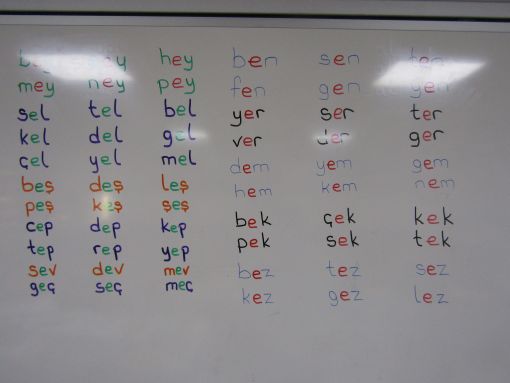 bey şey hey ben sen ten
mey ney pey fen gen yen
sel tel bel yer ser ter
kel del gel ver der ger
çel yel mel dem yem gem
beş deş leş hem kem nem
peş keş şeş
cep dep kep bek çek kek
tep rep yep pek sek tek
sev dev mev bez tez sez
geç seç meç kez gez lez